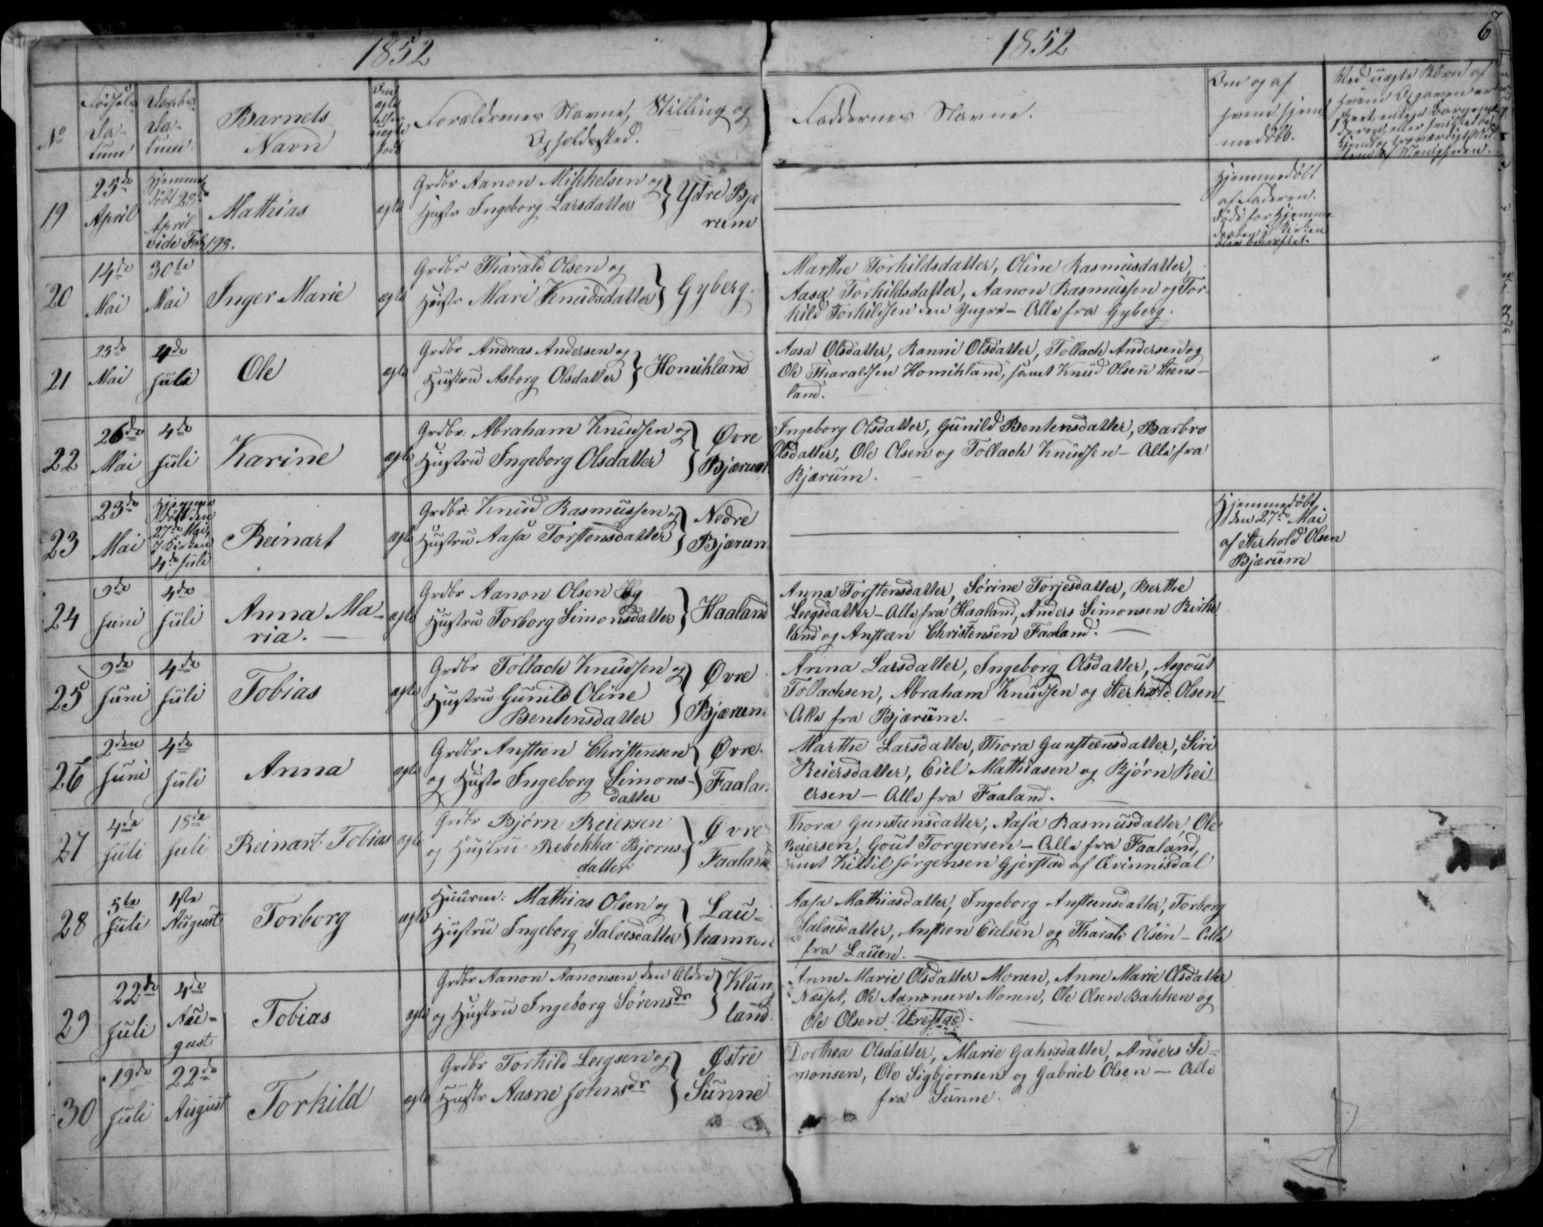 1852
1852
6
No
Fødsels
Da-
tum
Daabs
Da-
tum
Barnets
Navn
Forældrenes Navne, Stilling og
Opholdssted.
Faddernes Navne.
Om og af
hvem hjem-
medøbt.
19
25de
April
Hjemme-
døbt 28de
April
Mathias
ægte
Grdbr Aanon Mikkelsen og
Hustr Ingeborg Larsdatter
Ystre Bjæ
rum
Hjemmedøbt
af Faderen.
20
14de
Mai
30te
Mai
Inger Marie
ægte
Grdbr Tharald Olsen og
Hustr Mari Knudsdatter
Gyberg.
Marthe Torkildsdatter, Oline Rasmusdatter,
Aasa Torkildsdatter, Aanon Rasmussen og Tor-
kild Torkildsen den Yngre - Alle fra Gyberg.
21
23de
Mai
4de
Juli
Ole
ægte
Grdbr Andreas Andersen og
Hustru Asborg Olsdatter
Homikland
Aasa Olsdatter, Ranni Olsdatter, Tollach Andersen og
Ole Tharaldsen Homikland, samt Knud Olsen
land.
22
26de
Mai
4de
Juli
Karine
ægte
Grdbr. Abraham Knudsen og
Hustru Ingeborg Olsdatter
Øvre
Bjærum
Ingeborg Olsdatter, Gunild Bentensdatter, Barbro
Olsdatter, Ole Olsen og Tollach Knudsen - Alle fra
Bjærum.
23
23de
Mai
Hjemme
døbt den
27de Mai
i Kirken
4de Juli
Reinart
ægte
Grdbr. Knud Rasmussen og
Hustru Aasa Torstensdatter
Nedre
Bjærum
Hjemmedøbt
den 27de Mai
af Sterkold Olsen
Bjærum
24
9de
Juni
4de
Juli
Anna Ma-
ria. —
ægte
Grdbr Aanon Olsen og
Hustru Torborg Simonsdatter
Haaland
Anna Torstensdatter, Sørine Torjesdatter, Berthe
Leegsdatter - Alle fra Haaland, Anders Simonsen Birke
land og Ansteen Christensen Faaland.
25
9de
Juni
4de
Juli
Tobias
ægte
Grdbr Tollach Knudsen og
Hustru Gunild Oline
Bentensdatter
Øvre
Bjærum
Anna Larsdatter, Ingeborg Olsdatter, Asgout
Tollachsen, Abraham Knudsen og Sterkold Olsen
Alle fra Bjærum.
26
2den
Juni
4de
Juli
Anna
ægte
Grdbr Ansteen Christensen
og Hustr Ingeborg Simons-
datter
Øvre
Faaland
Marthe Larsdatter, Thora Gunsteensdatter, Siri
Reiersdatter, Eiel Mathiasen og Bjørn Rei
ersen - Alle fra Faaland.
27
4de
Juli
18de
Juli
Reinart Tobias
ægte
Grdbr Bjørn Reiersen
og Hustru Rebekka Bjorns-
datter
Øvre
Faaland
Thora Gunsteensdatter, Aasa Rasmusdatter, Ole
Reiersen, Gout Torgersen - Alle fra Faaland,
samt Kittil Jørgensen Gjerstad af Qvinnisdal
28
5te
Juli
1ste
August
Torborg
ægte
Huusm. Mathias Olsen og
Hustru Ingeborg Salvesdatter
Lau-
hamren
Aasa Mathiasdatter, Ingeborg Ansteensdatter, Torborg
Salvesdatter, Ansteen Eielsen og Tharald Olsen - Alle
fra Lauen.
29
22de
Juli
4de
Au-
gust
Tobias
ægte
Grdbr Aanon Aanonsen den Ældre
og Hustru Ingeborg Sørensdr
Klun
land.
Anne Marie Olsdatter Monen, Anne Marie Olsdatter
Næsset, Ole Aanonsen Monen, Ole Olsen Bakken og
Ole Olsen Urestad.
30
19de
Juli
22de
August
Torkild
ægte
Grdbr Torkild Leegsen og
Hustr Aasne Johnsdr
Østre
Sunne
Dorthea Olsdatter, Marie Gahrsdatter, Anders Si-
monsen, Ole Sigbjørnsen og Gabriel Olsen - Alle
fra Sunne.